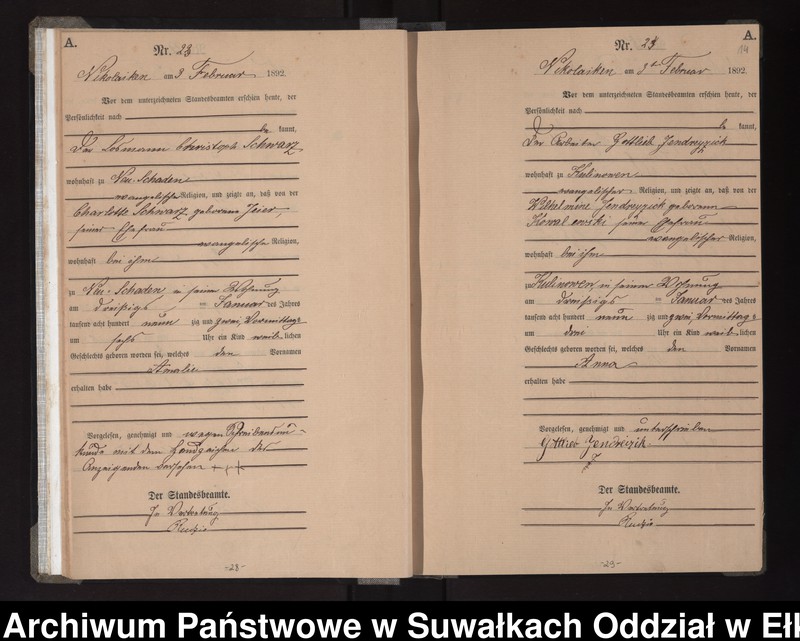 A.
Nr. 23
Nikolaiken am 3. Februar 1892.
Vor dem unterzeichneten Standesbeamten erschien heute, der
Persönlichkeit nach
be kannt,
Der Losmann Christoph Schwarz
wohnhaft zu Neu-Schaden
evangelischer Religion, und zeigte an, daß von der
Charlotte Schwarz geborene
seiner Ehefrau
evangelischer Religion,
wohnhaft bei ihm
zu Neu-Schaden in seiner Wohnung
am dreißigs ten Januar des Jahres
tausend acht hundert neun zig und zwei, Vormittags
um sechs Uhr ein Kind weib lichen
Geschlechts geboren worden sei, welches den Vornamen
Amalie
erhalten habe
Vorgelesen, genehmigt und wegen Schreibensun-
kunde mit dem Handzeichen des
Anzeigenden versehen + + +
Der Standesbeamte.
In Vertretung
-28-
A.
14
Nr. 23
Nikolaiken am 3ten Februar 1892
Vor dem unterzeichneten Standesbeamten erschien heute, der
Persönlichkeit nach
be kannt,
Der Arbeiter Gottlieb Jendreyzick
wohnhaft zu Kulinowen
evangelischer Religion, und zeigte an, daß von der
Wilhelmine Jendreyzick geborenen
Kowalewski seiner Ehefrau
evangelischer Religion,
wohnhaft bei ihm
zu Kulinowen, in seiner Wohnung
am dreißigs ten Januar des Jahres
tausend acht hundert neun zig und zwei, Vormittags
um drei Uhr ein Kind weib lichen
Geschlechts geboren worden sei, welches den Vornamen
Anna
erhalten habe
Vorgelesen, genehmigt und unterschrieben
Gottlieb Jendreizik
Der Standesbeamte.
In Vertretung
-29-
Archiwum Państwowe w Suwałkach Oddział w Eł